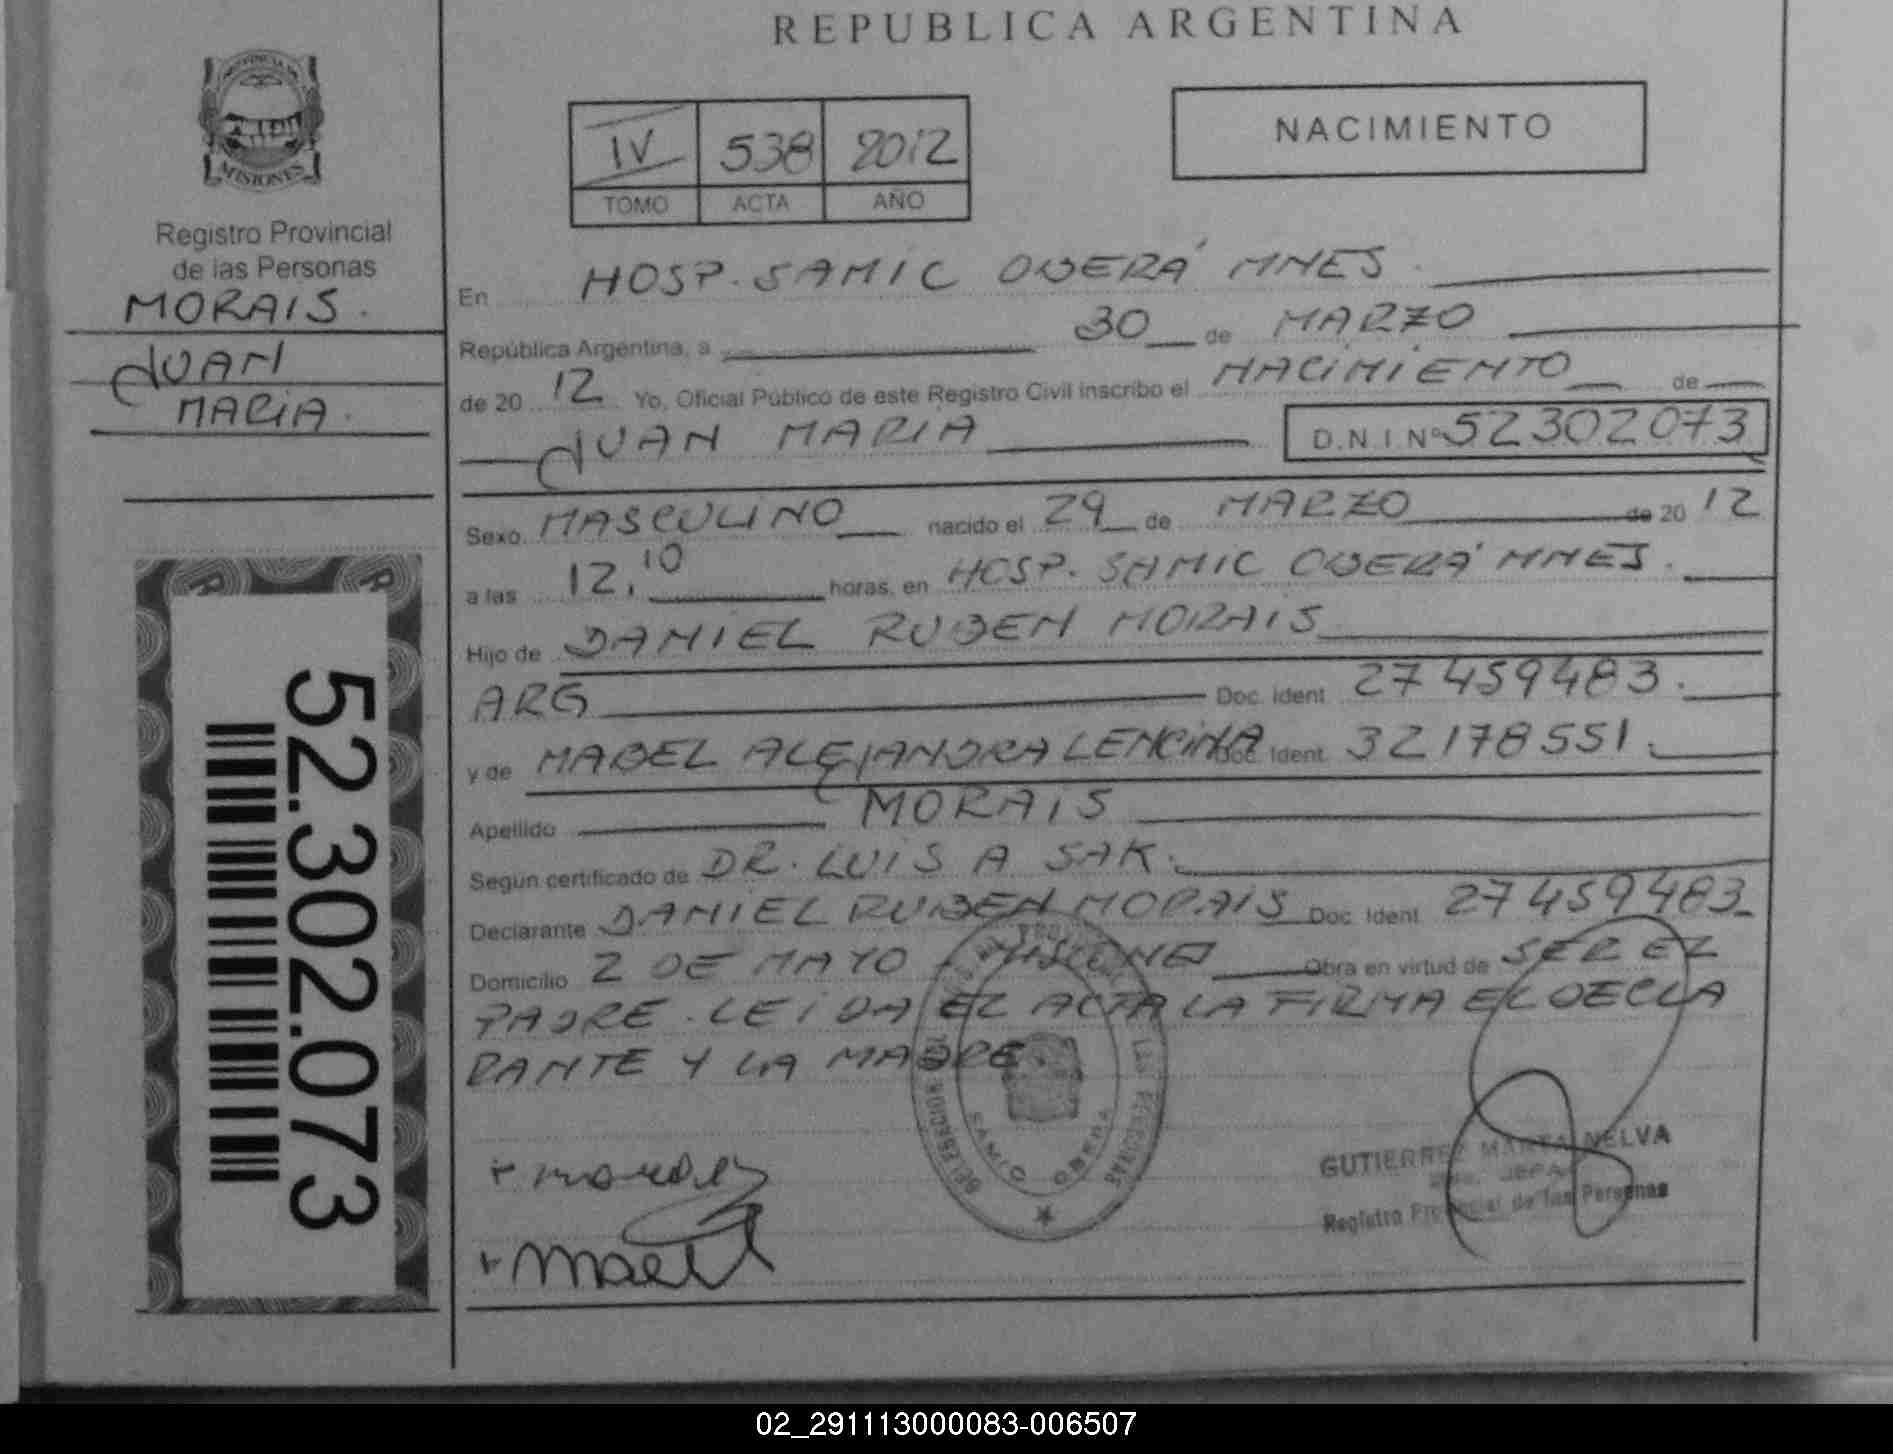 REPUBLICA ARGENTINA
PROVINCIA DE
MISIONES
Registro Provincial
de las Personas
MORAIS.
JUAN
MARIA.
52.302.073
IV 538 2012
TOMO ACTA AÑO
NACIMIENTO
En HOSP. SAMIC OBERÁ MNES.
República Argentina, a 30 de MARZO
de 20 12 Yo, Oficial Público de este Registro Civil inscribo el NACIMIENTO de
JUAN MARIA D.N.I.Nº 52302073
Sexo MASCULINO nacido el 29 de MARZO de 20 12
a las 12,10 horas, en HOSP. SAMIC OBERÁ MNES.
Hijo de DANIEL RUBEN MORAIS
ARG Doc. Ident. 27459483.
y de MABEL ALEJANDRA LENCINA Doc. Ident. 32178551.
Apellido MORAIS
Según certificado de DR. LUIS A SAK.
Declarante DANIEL RUBEN MORAIS Doc. Ident. 27459483
Domicilio 2 DE MAYO - MISIONES Obra en virtud de SER EL
PADRE. LEIDA EL ACTA LA FIRMA EL DECLA
RANTE Y LA MADRE.
SAMIC OBERA
GUTIERREZ MARTA NELVA
JEFA
Registro Provincial de las Personas
02_291113000083-006507